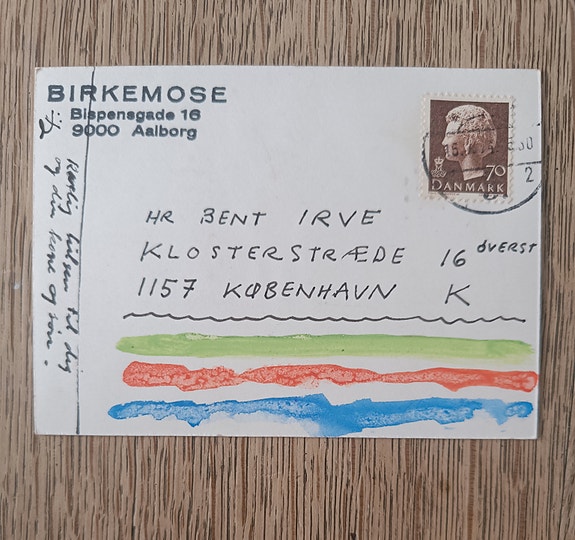 BIRKEMOSE
Bispensgade 16
9000 Aalborg
70
DANMARK
2
HR BENT IRVE
KLOSTERSTRÆDE 16 ØVERST
1157 KØBENHAVN K
Kærlig hilsen til dig
og din kone og søn.